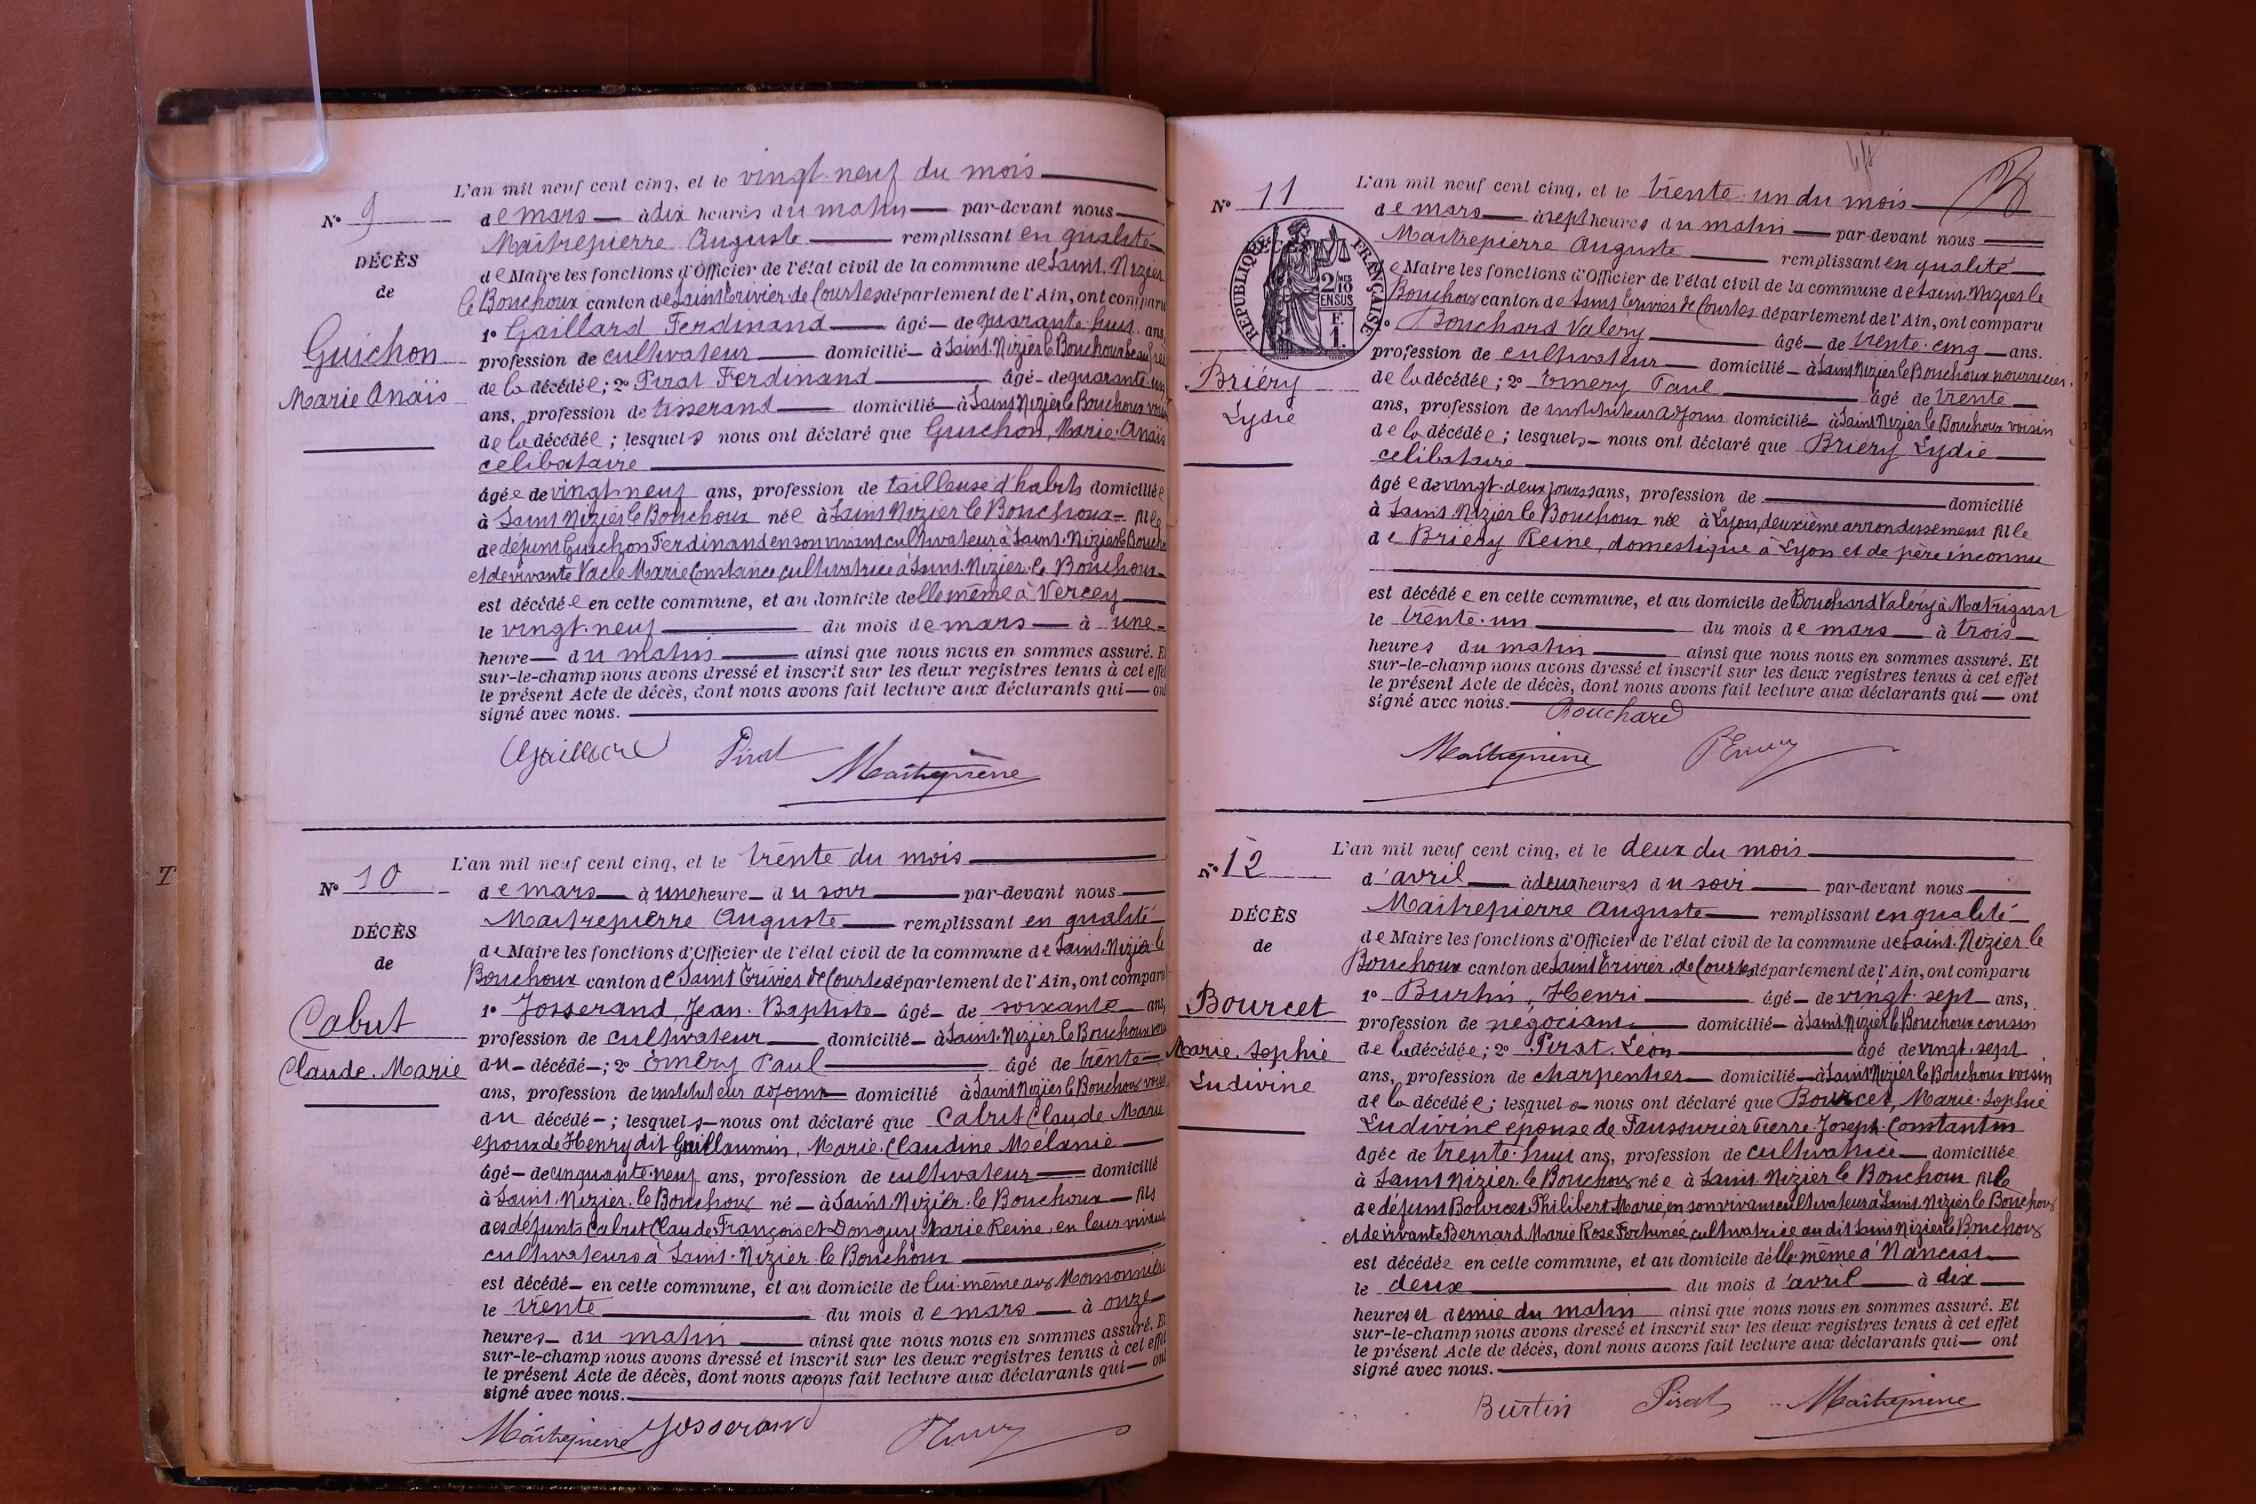 L'an mil neuf cent cinq, et le vingt-neuf du mois
N° 9
de mars à dix heures du matin par-devant nous
Maitrepierre Auguste remplissant en qualité
DÉCÈS
de Maire les fonctions d'Officier de l'état civil de la commune de Saint-Nizier
de
le Bouchoux canton de Saint Trivier de Courtes département de l'Ain, ont comparu
1° Gaillard Ferdinand âgé de quarante-huit ans
Guichon
profession de cultivateur domicilié à Saint-Nizier le Bouchoux beau
de la décédée; 2° Pirat Ferdinand âgé de quarante-un
Marie Anaïs
ans, profession de tisserand domicilié à Saint Nizier le Bouchoux voisin
de la décédée; lesquels nous ont déclaré que Guichon, Marie-Anaïs
célibataire
âgée de vingt-neuf ans, profession de tailleuse d'habits domiciliée
à Saint Nizier le Bouchoux née à Saint Nizier le Bouchoux fille
de défunt Guichon Ferdinand en son vivant cultivateur à Saint-Nizier le Bouchoux
et de vivante Vacle Marie Constance cultivatrice à Saint-Nizier-le Bouchoux
est décédée en cette commune, et au domicile d'elle même à Vercey
le vingt-neuf du mois de mars à une
heure du matin ainsi que nous nous en sommes assuré. Et
sur-le-champ nous avons dressé et inscrit sur les deux registres tenus à cet effet
le présent Acte de décès, dont nous avons fait lecture aux déclarants qui ont
signé avec nous.
Gaillard Pirat Maîtrepierre
L'an mil neuf cent cinq, et le trente du mois
N° 10
de mars à une heure du soir par-devant nous
Maitrepierre Auguste remplissant en qualité
DÉCÈS
de Maire les fonctions d'Officier de l'état civil de la commune de Saint-Nizier le
de
Bouchoux canton de Saint Trivier de Courtes département de l'Ain, ont comparu
1° Josserand, Jean-Baptiste âgé de soixante ans,
Cabut
profession de cultivateur domicilié à Saint-Nizier le Bouchoux voisin
Claude-Marie
du décédé; 2° Emery Paul âgé de trente
ans, profession de instituteur adjoint domicilié à Saint Nizier le Bouchoux voisin
du décédé; lesquels nous ont déclaré que Cabut Claude Marie
époux de Henry dit Guillaumin, Marie-Claudine Mélanie
âgé de cinquante-neuf ans, profession de cultivateur domicilié
à Saint-Nizier-le Bouchoux né à Saint-Nizier-le Bouchoux fils
des défunts Cabut Claude François et Donguy Marie Reine, en leur vivant
cultivateurs à Saint-Nizier le Bouchoux
est décédé en cette commune, et au domicile de lui-même aux
le trente du mois de mars à onze
heures du matin ainsi que nous nous en sommes assuré. Et
sur-le-champ nous avons dressé et inscrit sur les deux registres tenus à cet effet
le présent Acte de décès, dont nous avons fait lecture aux déclarants qui ont
signé avec nous.
Maîtrepierre Josserand PEmery
L'an mil neuf cent cinq, et le trente-un du mois
N° 11
de mars à sept heures du matin par-devant nous
Maitrepierre Auguste remplissant en qualité
de Maire les fonctions d'Officier de l'état civil de la commune de Saint-Nizier le
Bouchoux canton de Saint Trivier de Courtes département de l'Ain, ont comparu
RÉPUBLIQUE FRANÇAISE
2/10 EN SUS
F. 1.
1° Bouchard Valery âgé de trente-cinq ans.
profession de cultivateur domicilié à Saint Nizier le Bouchoux nourricier
Briéry
de la décédée; 2° Emery Paul âgé de trente
Lydie
ans, profession de instituteur adjoint domicilié à Saint Nizier le Bouchoux voisin
de la décédée; lesquels nous ont déclaré que Briery Lydie
célibataire
âgée de vingt-deux jours ans, profession de domicilié
à Saint-Nizier le Bouchoux née à Lyon, deuxième arrondissement fille
de Briéry Reine, domestique à Lyon et de père inconnu
est décédée en cette commune, et au domicile de Bouchard Valéry à Matrignat
le trente-un du mois de mars à trois
heures du matin ainsi que nous nous en sommes assuré. Et
sur-le-champ nous avons dressé et inscrit sur les deux registres tenus à cet effet
le présent Acte de décès, dont nous avons fait lecture aux déclarants qui ont
signé avec nous.
Bouchard
Maîtrepierre PEmery
L'an mil neuf cent cinq, et le deux du mois
N° 12
d'avril à deux heures du soir par-devant nous
Maitrepierre Auguste remplissant en qualité
DÉCÈS
de Maire les fonctions d'Officier de l'état civil de la commune de Saint-Nizier le
de
Bouchoux canton de Saint Trivier de Courtes département de l'Ain, ont comparu
1° Burtin, Henri âgé de vingt-sept ans,
Bourcet
profession de négociant domicilié à Saint Nizier le Bouchoux cousin
Marie-Sophie
de la décédée; 2° Pirat Léon âgé de vingt-sept
Ludivine
ans, profession de charpentier domicilié à Saint Nizier le Bouchoux voisin
de la décédée; lesquels nous ont déclaré que Bourcet, Marie-Sophie
Ludivine épouse de Faussurier Pierre-Joseph-Constantin
âgée de trente-huit ans, profession de cultivatrice domiciliée
à Saint Nizier-le Bouchoux née à Saint-Nizier le Bouchoux fille
de défunt Bourcet Philibert Marie, en son vivant cultivateur à Saint-Nizier le Bouchoux
et de vivante Bernard Marie Rose Fortunée, cultivatrice au dit Saint Nizier le Bouchoux
est décédée en cette commune, et au domicile d'elle même à Nanciat
le deux du mois d'avril à dix
heures et demie du matin ainsi que nous nous en sommes assuré. Et
sur-le-champ nous avons dressé et inscrit sur les deux registres tenus à cet effet
le présent Acte de décès, dont nous avons fait lecture aux déclarants qui ont
signé avec nous.
Burtin Pirat Maîtrepierre